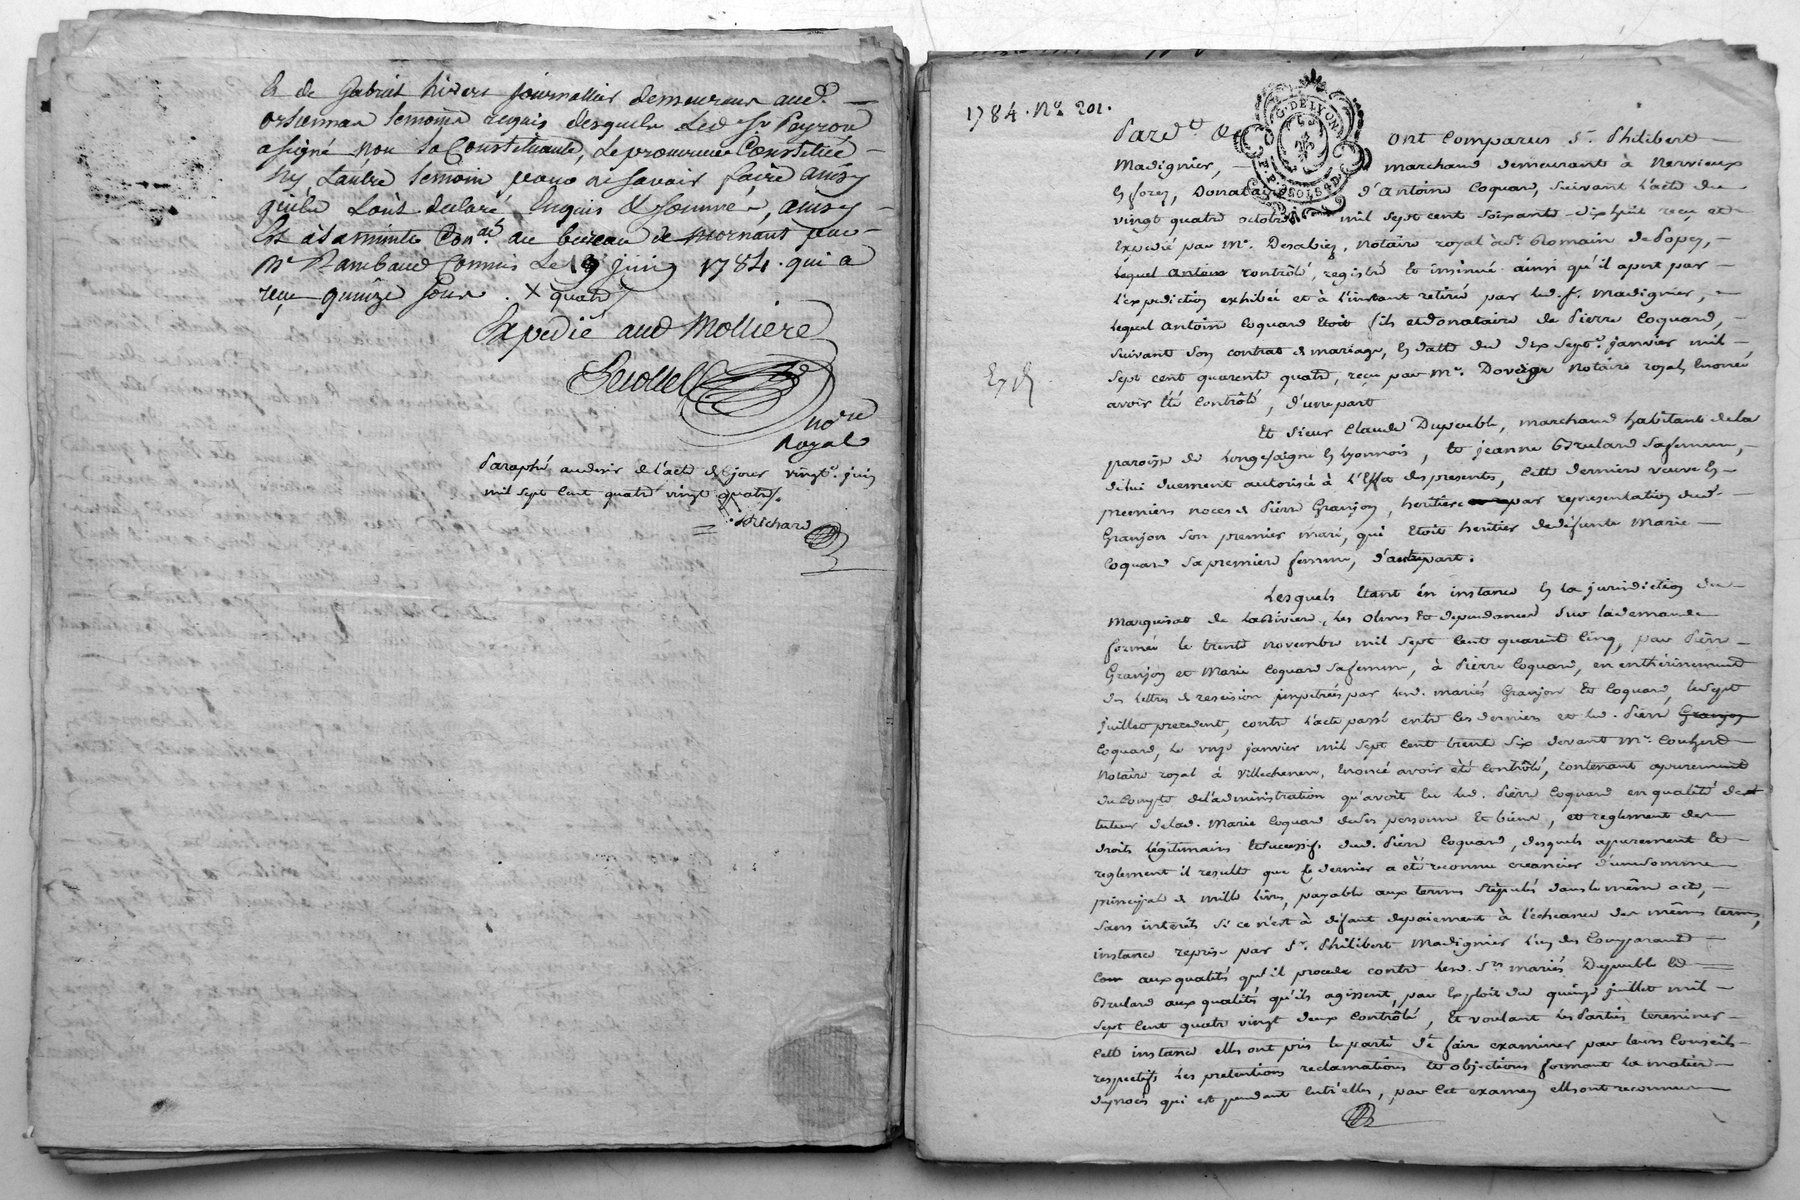 & de Gabriel hivers journallier demeurant aud.
orliennas temoins requis desquels Led. Sr Peyron
a signé non la Constituante, Le procureur Constitué
ny L'autre temoin pour ne savoir faire ainsy
qu'ils L'ont declaré Enquis & Sommés, ainsy
Est à la minute Con.lée au bureau de mornant par
Mr Rambaud Commis Le 19 juin 1784. qui a
reçu quinze sous. X quatre
Expedié aud Molliere
nore
Royal
Paraphé au desir de l'acte de ce jour vingt juin
mil sept cent quatre vingt quatre.
Richard
1784. No. 201.
G.G. DE LYON
Pardt
ont comparus Sr. Philibert
Madignier, marchand demeurant à Nervieux
en forez, Donataire d'Antoine Coquard, suivant l'acte du
vingt quatre octobre mil sept cent soixante-dix huit reçu et
Expedié par Me. Desabiez, Notaire royal à St. Romain de Popey,
lequel antoine controlé, registré et insinué ainsi qu'il apert par
l'expedition exhibée et à l'instant retirée par led. s. Madignier,
lequel Antoine Coquard Etoit fils et donataire de Pierre Coquard,
suivant son contrat de mariage, en datte du dix sept janvier mil
sept cent quarente quatre, reçu par Me. Notaire royal Enoncé
avoir Eté Controlé, d'une part
Exp
Et Sieur Claude Dupeuble, marchand habitant de la
paroisse de Longesaigne en Lyonnois, Et jeanne Brulard sa femme,
de lui duement autorisée à l'Effet des presentes, cette derniere veuve en
premiers noces de Pierre Granjon, heritiere par representation dud.
Granjon son premier mari, qui Etoit heritier de defunte Marie
Coquard sa premiere femme, d'autre part.
Lesquels Etant en instance en la jurisdiction du
Marquisat de la Riviere, les olmes Et dependances sur la demande
formée le trente novembre mil sept cent quarente cinq, par Pierre
Granjon et Marie Coquard sa femme, à Pierre Coquard, en entherinement
des lettres de rescision impetrées par led. mariés Granjon Et Coquard, le sept
juillet precedent, contre l'acte passé entre ces derniers et led. Pierre Granjon
Coquard, le onze janvier mil sept cent trente six devant Me. Couherd
Notaire royal à Villechenève, Enoncé avoir été Controlé, contenant apurement
du compte de l'administration qu'avoit Eu led. Pierre Coquard en qualité de
tuteur de lad. Marie Coquard de ses personne Et biens, et reglement des
droits légitimaires Et successifs dud. Pierre Coquard, desquels apurement Et
reglement il resulte que ce dernier a été reconnu creancier d'une somme
principale de mille livres, payable aux termes stipulés dans le même acte,
sans intérêts si ce n'est à défaut de paiement à l'écheance des mêmes termes,
instance reprise par Sr. Philibert Madignier l'un des Comparants
aux qualités qu'il procede contre lesd. Srs mariés Dupeuble Et
Brulard aux qualités qu'ils agissent, par Exploit du quinze juillet mil
sept cent quatre vingt deux Controlé, Et voulant les Parties terminer
cette instance elles ont pris le parti de faire examiner par leurs Conseils
respectifs les pretentions reclamations et objections formant la matiere
du procès qui est pendant entr'elles, par cet examen elles ont reconnu